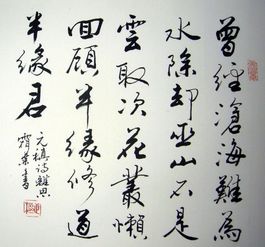 曾經滄海難為
水除却巫山不是
雲取次花叢懶
回顧半緣修道
半緣君
元稹詩離思
書